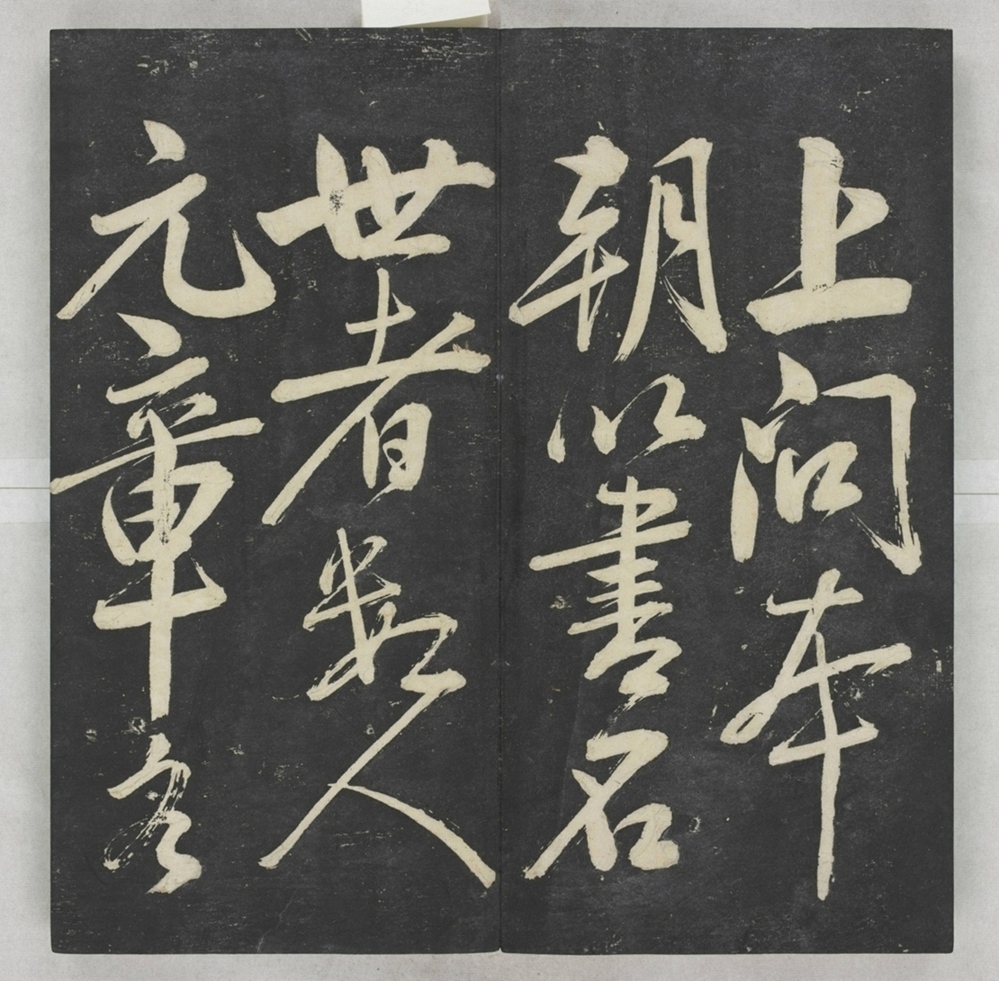 上問本
朝以書名
世者數人
元章各